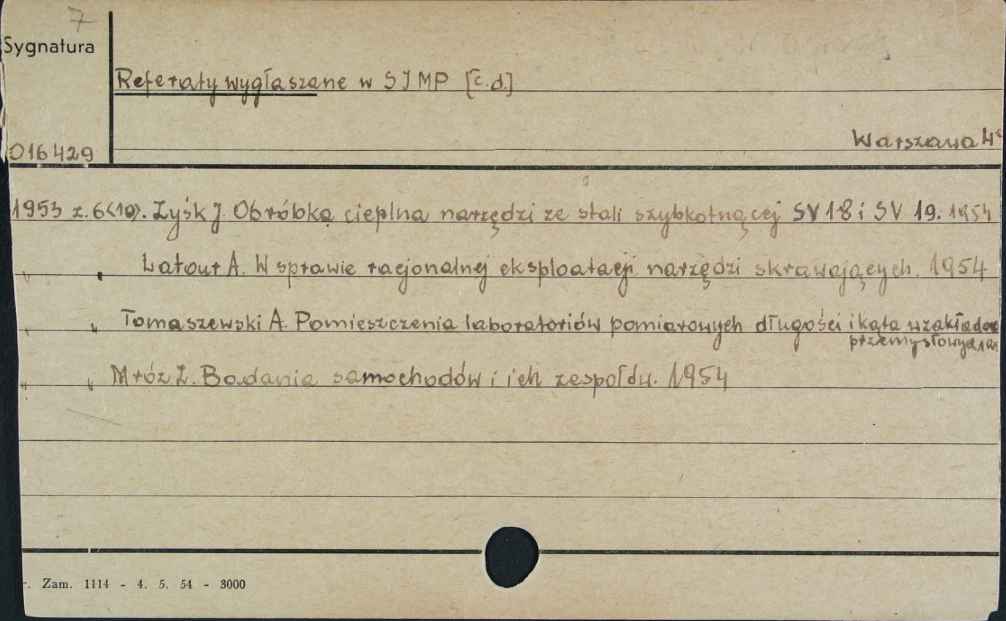 7
Sygnatura
Referaty wygłaszane w SIMP [c.d.]
016429
Warszawa 4°
1953 z. 6(10). Zyśk J. Obróbka cieplna narzędzi ze stali szybkotnącej SV 18 i SV 19. 1954
" " Latour A. W sprawie racjonalnej eksploatacji narzędzi skrawających. 1954
" " Tomaszewski A. Pomieszczenia laboratoriów pomiarowych długości i kąta w zakładach
przemysłowych
" " Mróz Z. Badania samochodów i ich zespołów. 1954
r. Zam. 1114 - 4. 5. 54 - 3000